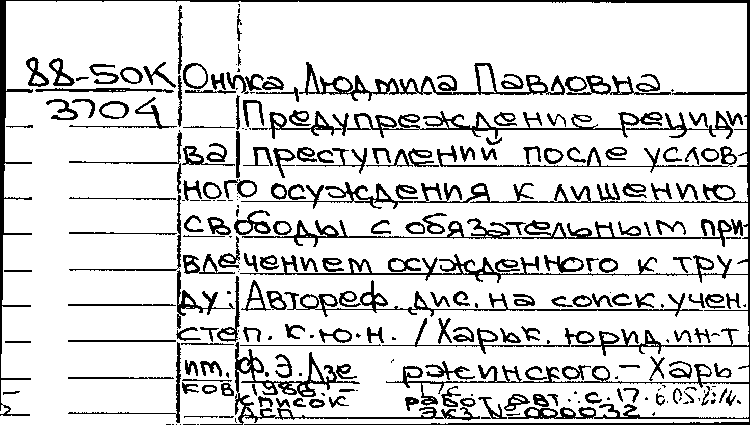 88-50К Оника, Людмила Павловна
3704 Предупреждение рециди-
ва преступлений после услов-
ного осуждения к лишению
свободы с обязательным при-
влечением осужденного к тру-
ду: Автореф. дис. на соиск. учен.
степ. к.ю.н. / Харьк. юрид. ин-т
им. Ф. Э. Дзержинского. - Харь-
ков, 1988. - 17с.
Список работ авт.: с. 17.
ДСП Экз. № 000032.